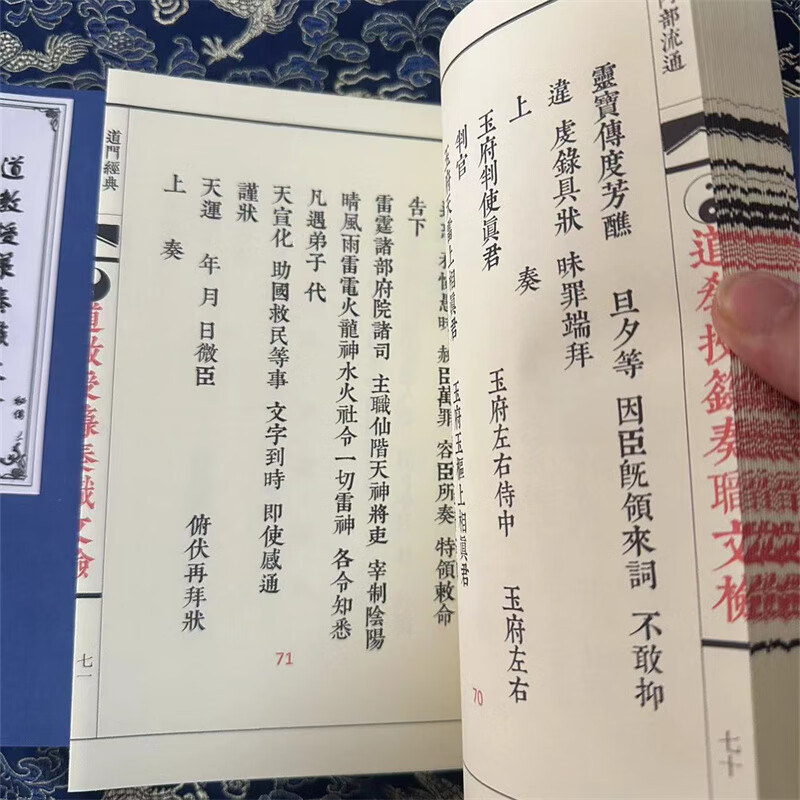 部流通
道教授籙奏職文檢
七十
靈寶傳度芳醮 旦夕等 因臣旣領來詞 不敢抑
違 虔錄具狀 昧罪端拜
上 奏
玉府判使眞君 玉府左右侍中 玉府左右
判官
上相眞君 玉府玉樞上相眞君
70
赦臣萬罪 容臣所奏 特領敕命
告下
雷霆諸部府院諸司 主職仙階天神將吏 宰制陰陽
晴風雨雷電火龍神水火社令一切雷神 各令知悉
凡遇弟子 代
天宣化 助國救民等事 文字到時 即使感通
謹狀
天運 年 月 日微臣 俯伏再拜狀
上 奏
71
道門經典
道教授籙奏職文檢
七一
道教授籙奏職文